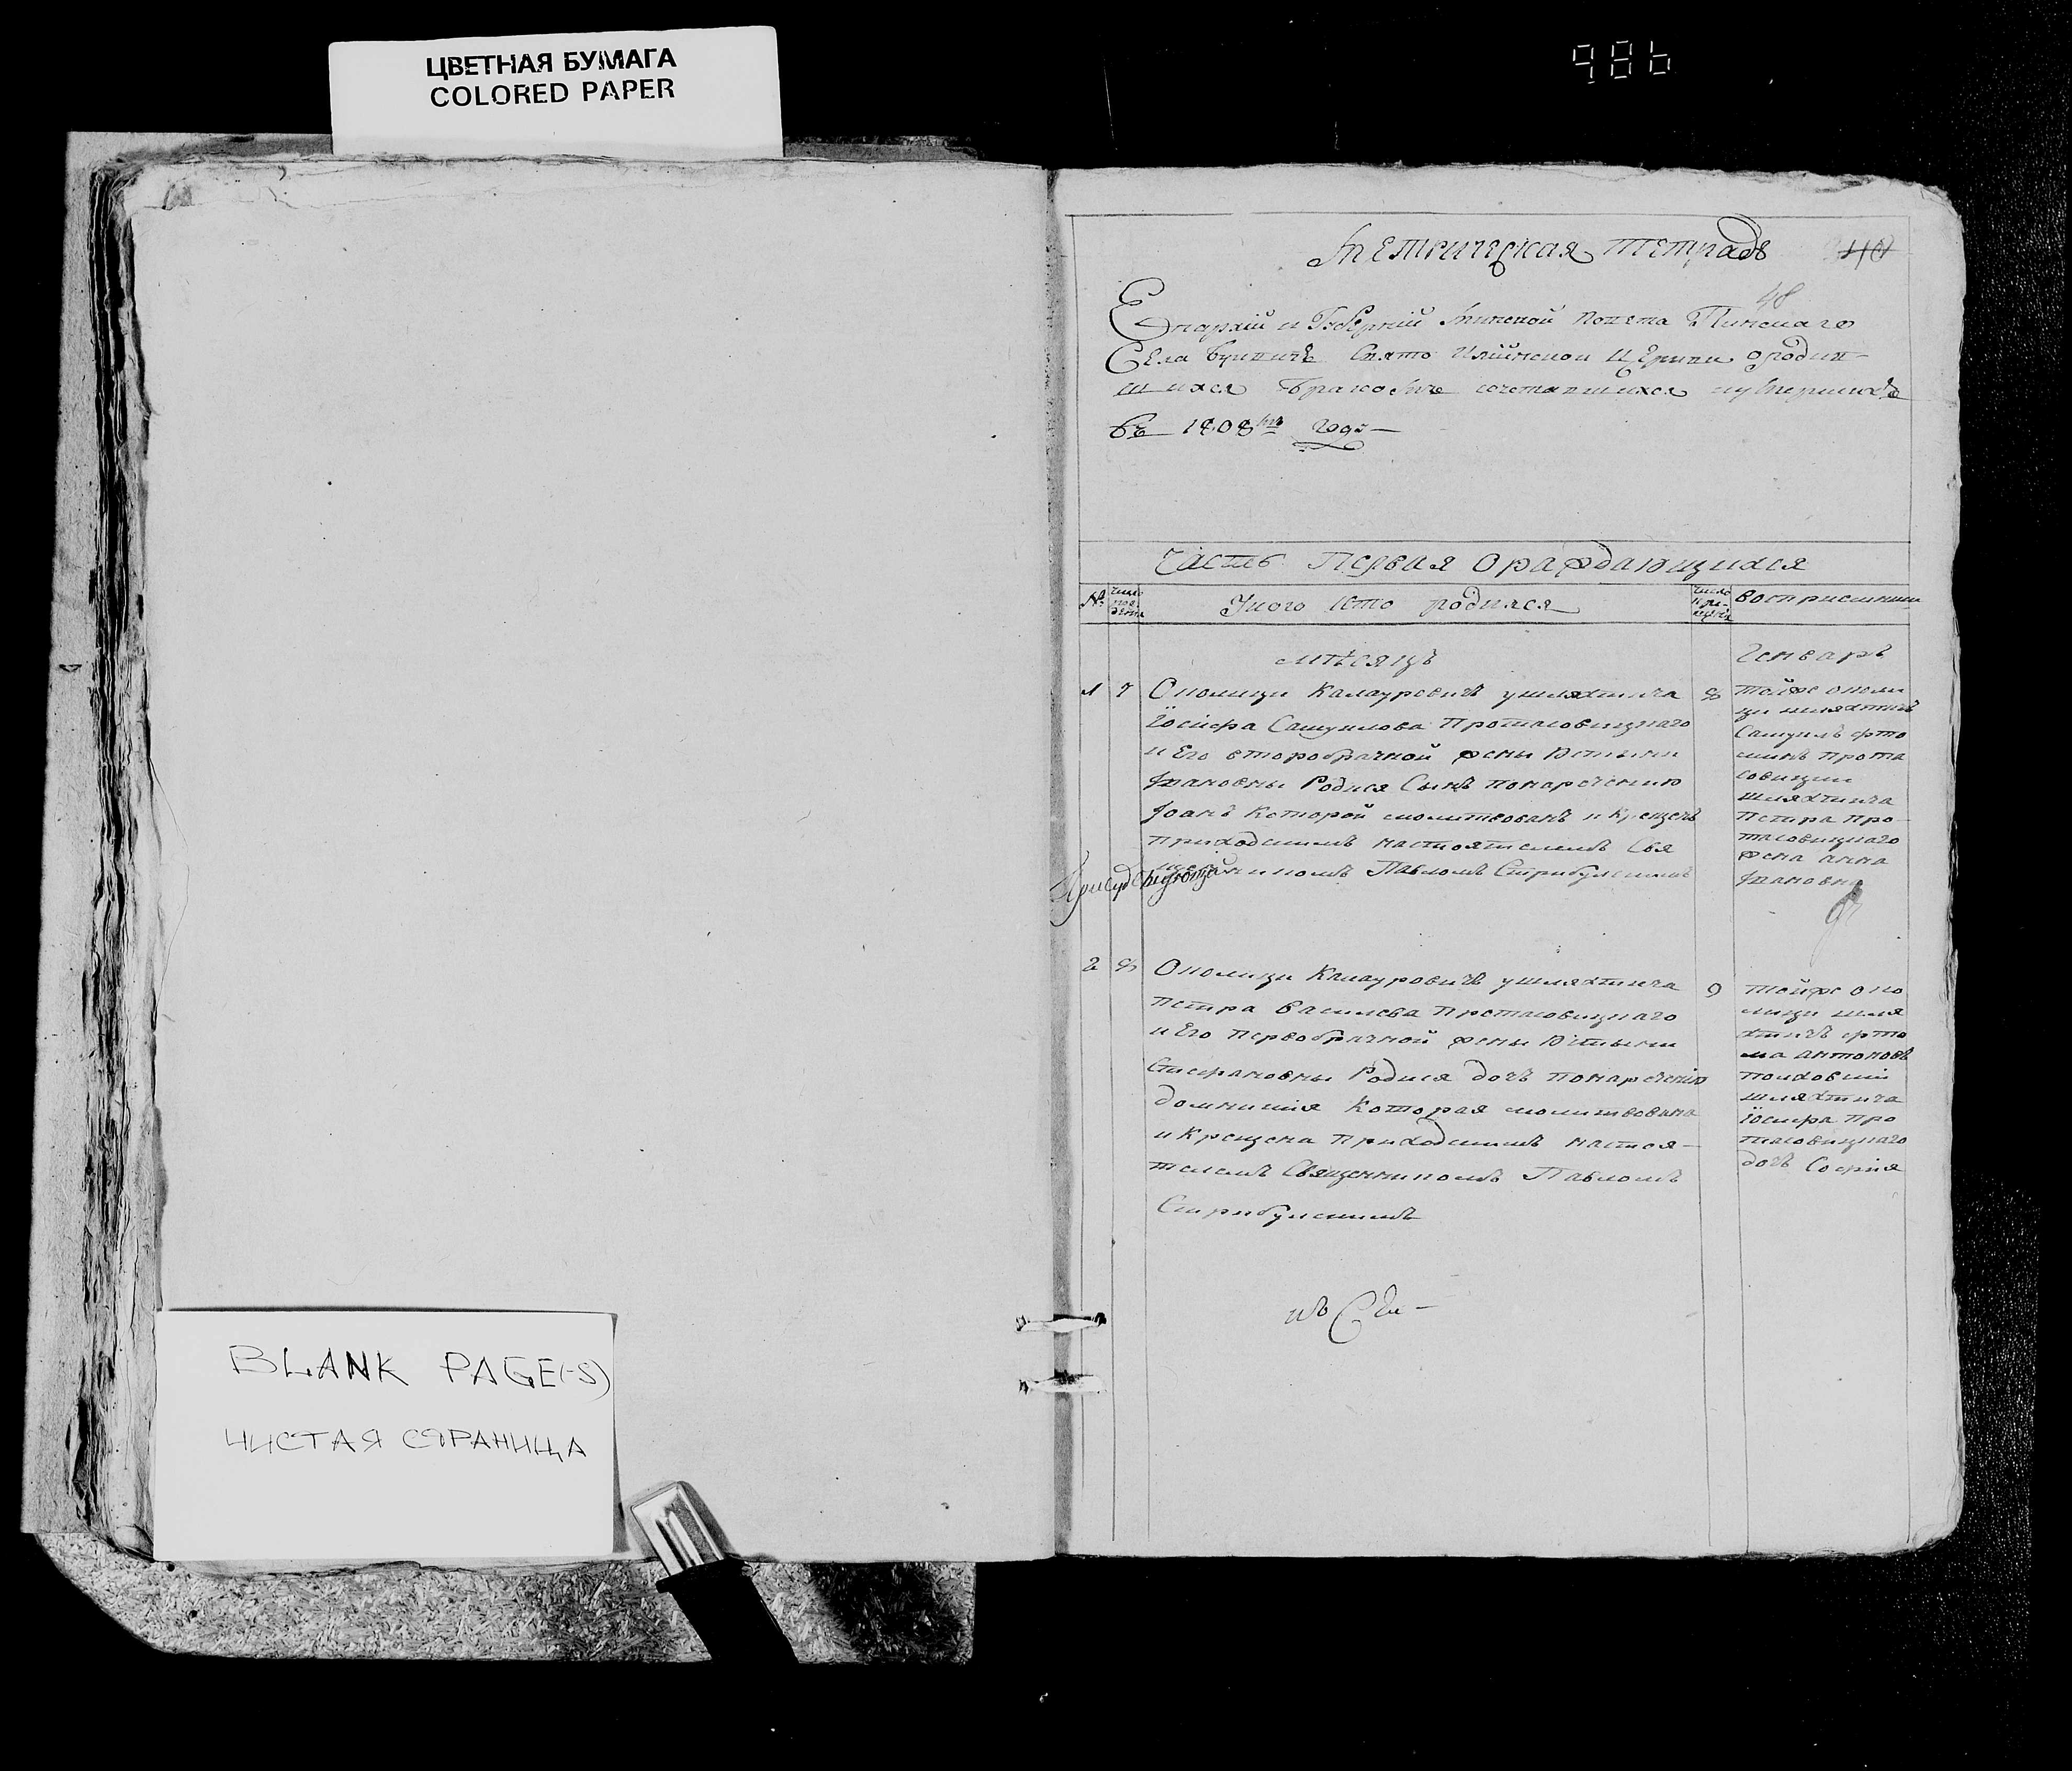 ЦВЕТНАЯ БУМАГА
COLORED PAPER
986
BLANK PAGE(-S)
ЧИСТАЯ СТРАНИЦА
Метрическая тетрадь
40
48
Епархіи и Губерніи Минской Повета Пинскаго
Села Свято Илиинской Церкви о родив-
шихся бракомъ сочетавшихся и умершихъ
въ 1808мъ году
Часть Первая о раждающихся
№ число рож-дения
У кого кто родился
число креще-ния
восприемники
мѣсяцъ
Генварь
1 7
Околицы Калауровичъ у шляхтича
Іосифа Самуилова Протасовицкаго
и Его второбрачной жены Юстыни
Ивановны Родися Сынъ по наречению
Іоанъ Которой молитвованъ и Крещенъ
приходскимъ настоятелемъ Свя
щенникомъ Павломъ
8
тойже околи
цы шляхтичъ
Самуилъ
Прота
совицкий
шляхтича
Петра Про
тасовицкаго
жена анна
Ивановна
2 8
Околицы Калауровичъ у шляхтича
Петра Василева Протасовицкаго
и Его первобрачной жены Юстыни
Стефановны Родися дочь по наречению
Которая молитвована
и Крещена Приходскимъ настоя-
телемъ Священникомъ Павломъ
9
тойже око
лицы шля
хтичъ
антоновъ
шляхтича
Іосифа Про
тасовицкаго
дочь Софія